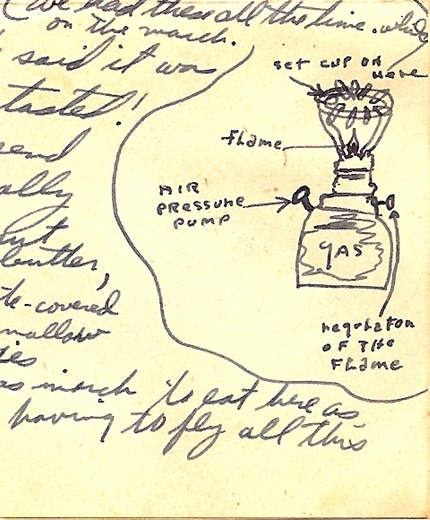 (we had these all the time. while
on the march.
said it was
tasted!
send
ally
but
butter,
te-covered
mallow
ies
as march to eat here as
having to fly all this
set cup on
here
flame
AIR
PRESSURE
PUMP
GAS
regulator
OF THE
FLAME